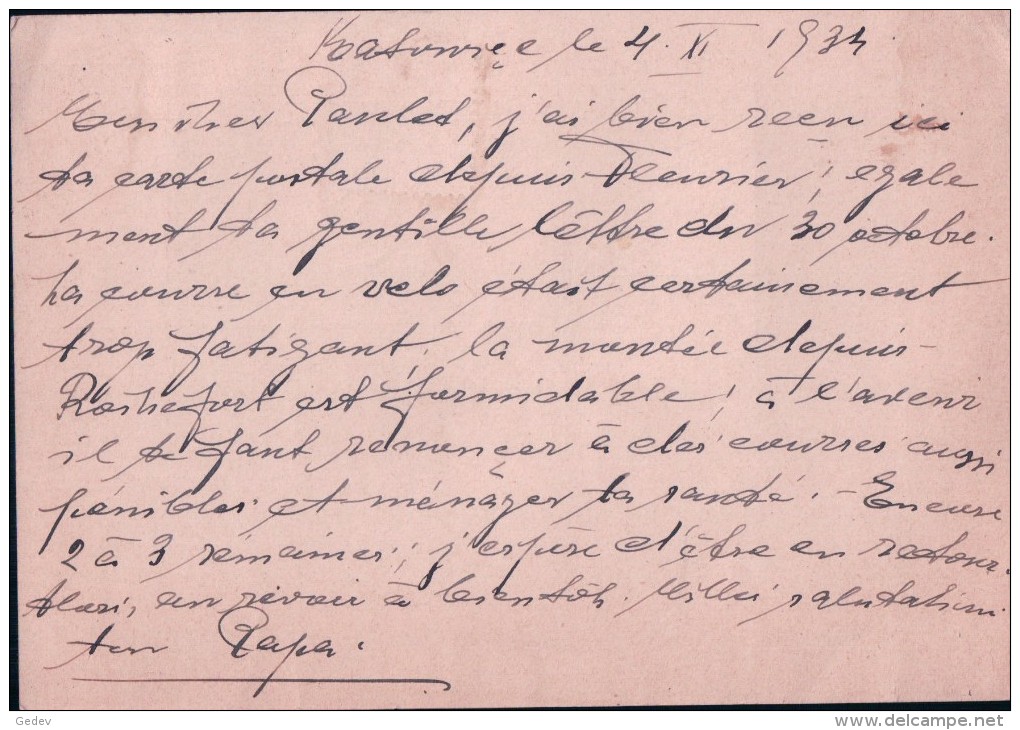 Katowice le 4. XI 1934
Mon cher Paulet, j'ai bien reçu ici
ta carte postale depuis Fleurier; égale
ment ta gentille lettre du 30 octobre.
La course en velo était certainement
trop fatigant, la montée depuis
Rochefort est formidable; à l'avenir
il te faut renonçer à des courses aussi
pénibles et ménager ta santé. - Encore
2 à 3 sémaines; j'espère d'être en retour.
Alors, au revoir à bientôt. Milles salutations
ton Papa.
Gedev
www.delcampe.net